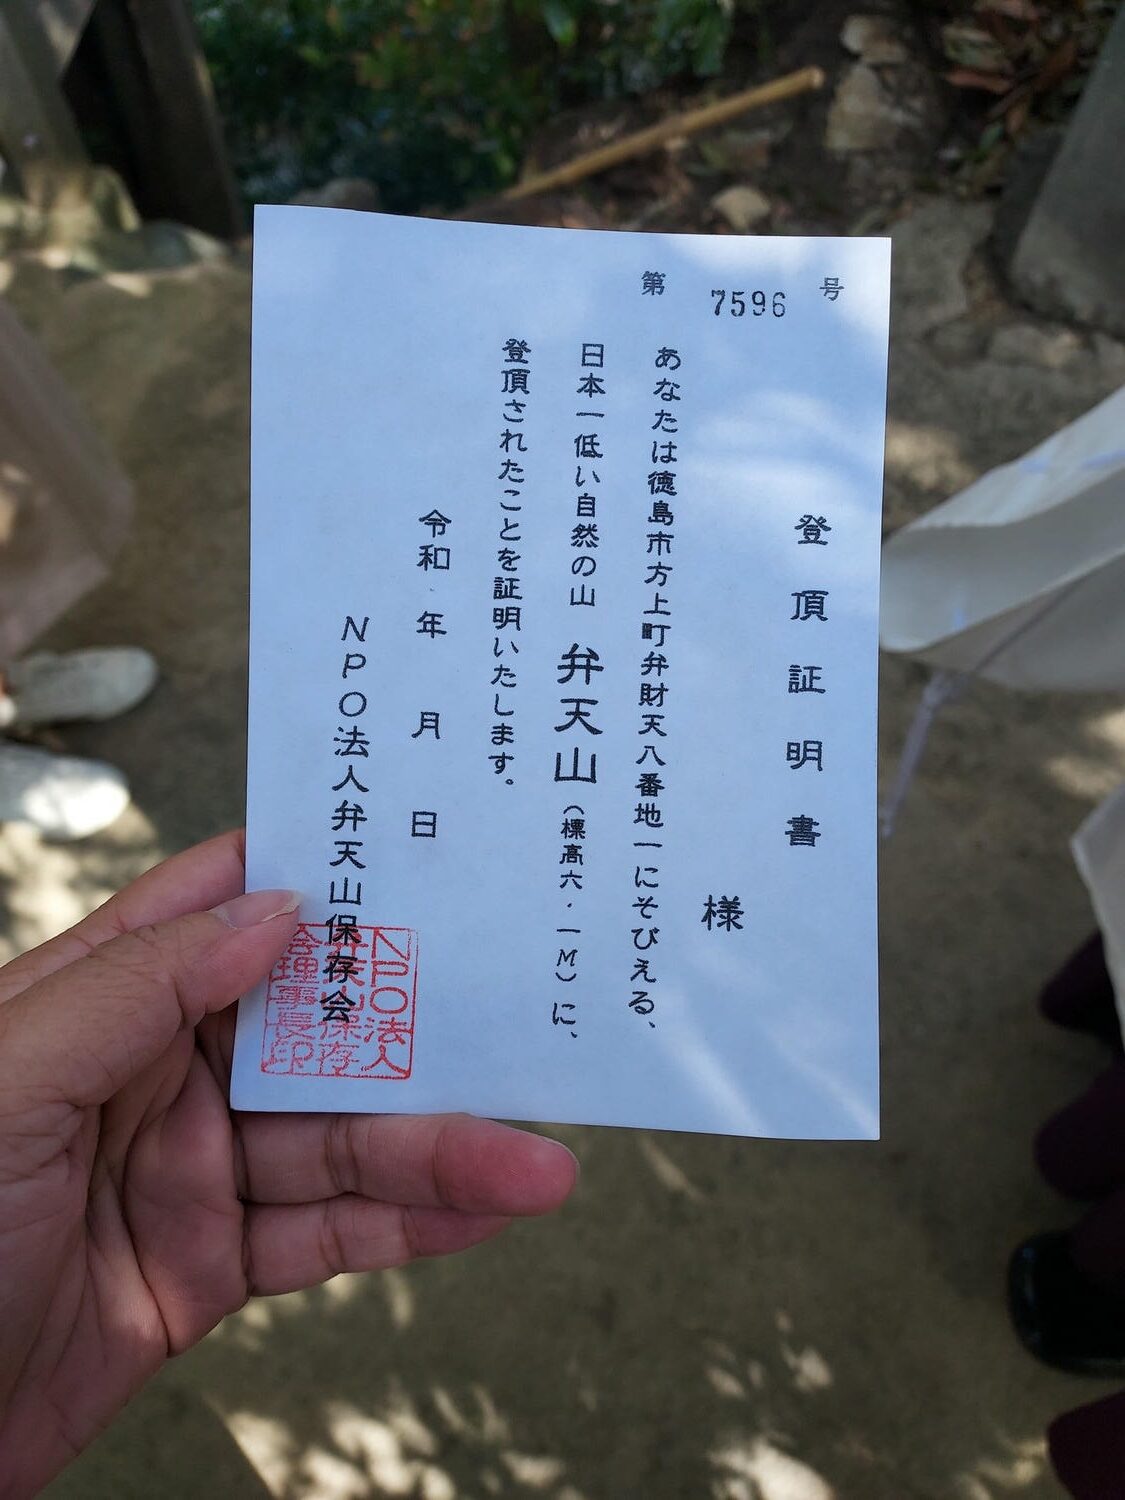 第 7596 号
登頂証明書
様
あなたは徳島市方上町弁財天八番地一にそびえる、
日本一低い自然の山 弁天山(標高六・一M)に、
登頂されたことを証明いたします。
令和 年 月 日
NPO法人弁天山保存会
NPO法人
弁天山保存
会理事長印